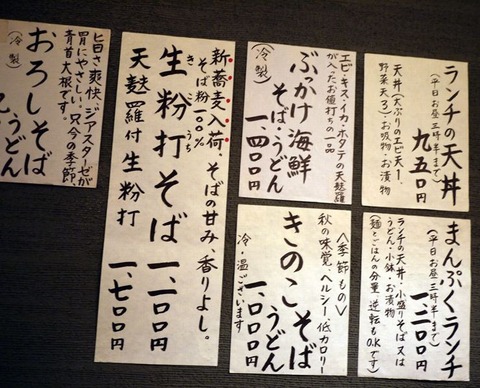 ランチの天丼
(平日お昼三時半まで)
九五〇円
天丼(大ぶりのエビ天1、
野菜天3)・お吸物・お漬物
まんぷくランチ
(平日お昼三時半まで)
一二〇〇円
ランチの天丼・小盛りそば又は
うどん・小鉢・お漬物
(麺とごはんの分量 逆転もO.Kです)
エビ・キス・イカ・ホタテの天麩羅
が入ったお値打ちの一品
ぶっかけ海鮮
そば・うどん
(冷製)
一、四〇〇円
<季節もの>
秋の味覚、ヘルシー、低カロリー
きのこそば
うどん
冷・温ございます
一、〇〇〇円
新蕎麦入荷、そばの甘み、香りよし。
そば粉一〇〇%
生粉打そば 一、二〇〇円
きこうち
天麩羅付生粉打 一、七〇〇円
旨さ爽快、ジアスターゼが
胃にやさしい、只今の季節、
青首大根です。
おろしそば
(冷製)
うどん